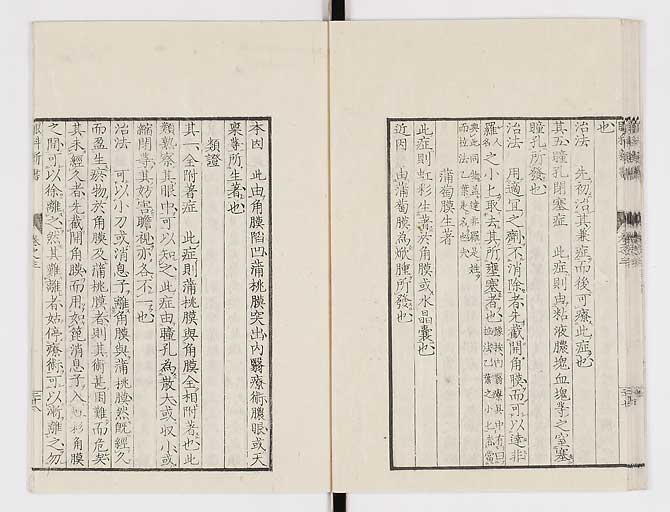 也
治法　先初治其兼症而後可療此症也
其五瞳孔閉塞症　此症則由粘液膿塊血塊等之窒塞
瞳孔所發也
治法　用適宜之劑不消除者先截開角膜而可以達非
羅人名之小匕取去其所壅塞者也
蒲萄膜生著
此症則虹彩生著於角膜或水晶囊也
近因　由蒲萄膜為焮腫所發也
本因　此由角膜陷凹蒲桃膜突出內翳療術膿眼或天
稟等所生著也
類證
其一全附著症　此症則蒲桃膜與角膜全相附著也此
類熟察其眼中可以知之此症由瞳孔為散大或收小或
縮閉等其妨害瞻視亦各不一也
治法　可以小刀或消息子離角膜與蒲桃膜然既經久
而盈生瘀物於角膜及蒲桃膜者則其術甚困難而危矣
其未經久者先截開角膜而用如篦消息子入虹彩角膜
之間可以徐離之然其難離者姑停療術可以漸離之勿
眼科新書
卷之三
二十八